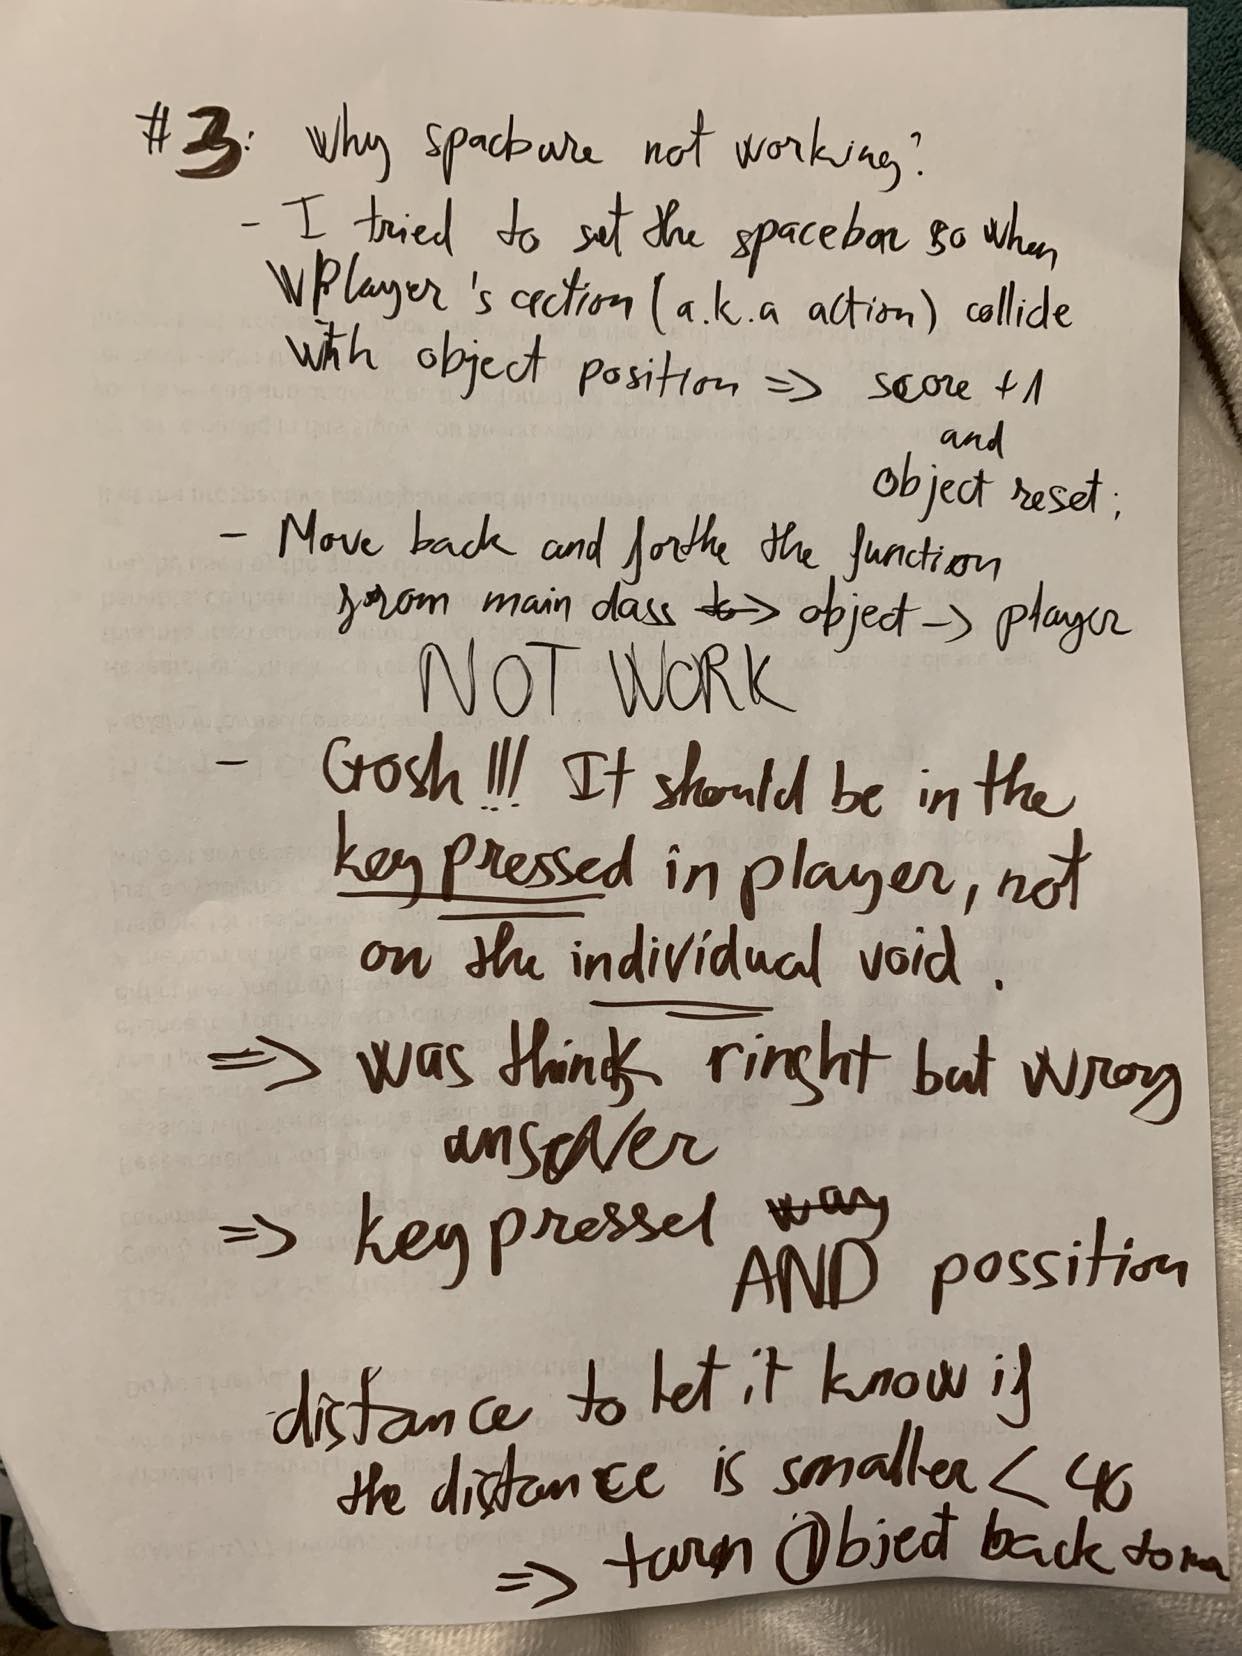 #3: Why spacbure not working?
- I tried to set the spacebar so when
Player's cection (a.k.a action) collide
With object position => score +1
and
object reset;
- Move back and forthe the function
from main class -> object -> player
NOT WORK
- Gosh!!! It should be in the
key pressed in player, not
on the individual void.
=> was think ringht but wrong
answer
=> key pressed way
AND possition
distance to let it know if
the distance is smaller < 40
=> turn Object back to